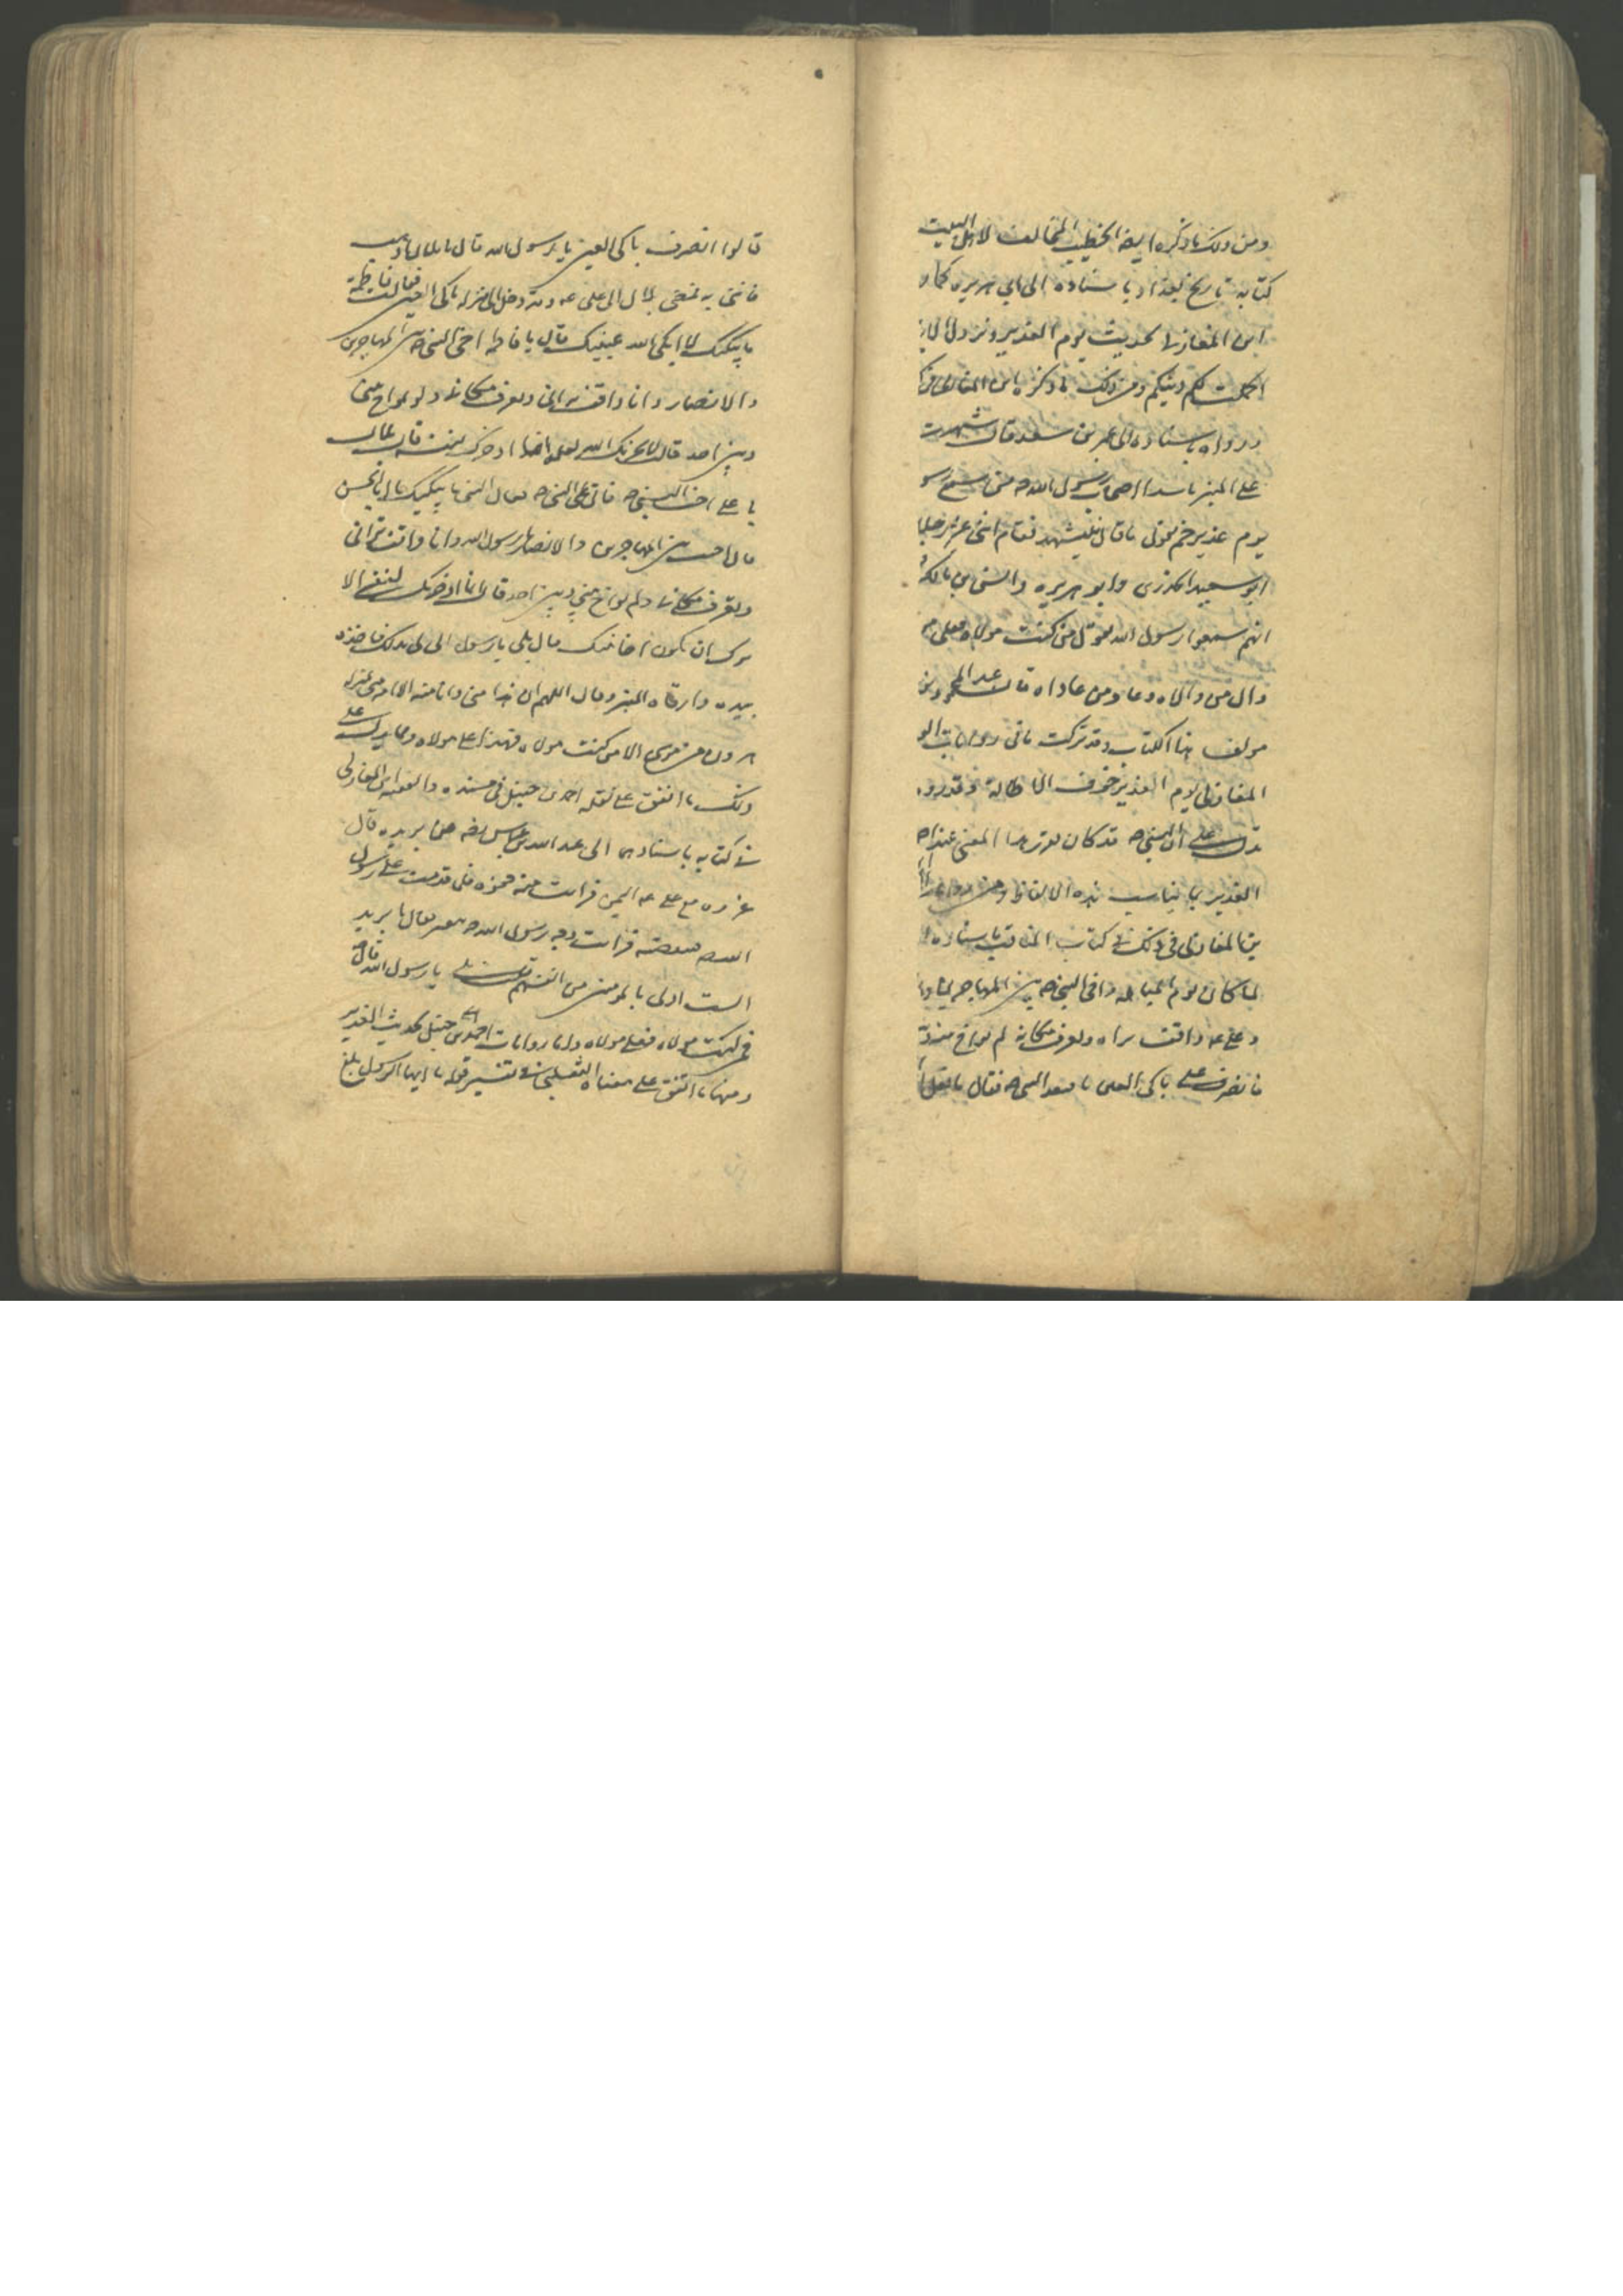 ومن ذلك ما ذكره ايضا الخطيب المخالف لاهل البيت
كتابه تاريخ بغداد باسناده الى ابي هريره كما رو
ابن المغازلى لحديث يوم الغدير و نزول الاية
اكملت لكم دينكم ومن ذلك ما ذكره ابن المغازلى
ورواه باسناده الى عمر بن سعد قال شهدت
على المنبر ناشدا اصحاب رسول الله ص من سمع رسو
يوم غدير خم يقول ما قال فليشهد فقام اثنى عشر رجلا
ابو سعيد الخدرى وابو هريره وانس بن مالك
انهم سمعوا رسول الله يقول من كنت مولاه فعلى
وال من والاه وعاد من عاداه قال عبد المحمود بن
مولف هذا الكتاب وقد تركت باقى روايات
المغازلى يوم الغدير خوف الاطاله وقد روى
تدل على ان النبي ص قد كان يقرر هذا المعنى عند
الغدير بما يناسب هذه الالفاظ ومن روايه
المغازلى فى ذلك فى كتاب المناقب باسناده
لما كان يوم المباهله واخى النبي ص بين المهاجرين
وعلى عه واقف يراه ويعرف مكانه لم يواخ بينه
فانصرف على باكى العين فافتقده النبي ص فقال ما فعل
قالوا انصرف باكى العين يا رسول الله قال يا بلال اذهب
فاتنى به فمضى بلال الى على عه وقد دخل الى منزله باكى العين فقالت فاطمة
ما يبكيك لا ابكى الله عينيك قال يا فاطمه اخى النبي ص بين المهاجرين
والانصار وانا واقف يرانى ويعرف مكانى ولم يواخ بينى
وبين احد قالت لا يحزنك الله لعله انما ادخرك لنفسه فقال بلال
يا على اجب النبي ص فاتى على النبي ص فقال النبي ما يبكيك يا ابا الحسن
قال اخيت بين المهاجرين والانصار يا رسول الله وانا واقف ترانى
وتعرف مكانى ولم تواخ بينى وبين احد قال انما ادخرتك لنفسى الا
يسرك ان تكون اخا نبيك قال بلى يا رسول الله انى لى بذلك فاخذه
بيده وارقاه المنبر وقال اللهم ان هذا منى وانا منه الا انه منى بمنزله
هرون من موسى الا من كنت مولاه فهذا على مولاه ومما يدل على
ذلك ما اتفق على نقله احمد بن حنبل فى مسنده والفقيه ابن المغازلى
فى كتابه باسنادهما الى عبد الله بن عباس رضه عن بريده قال
غزوت مع على عه اليمن فرايت منه جفوه فلما قدمت على رسول
الله ص تنقصته فرايت وجه رسول الله ص تغير فقال يا بريده
الست اولى بالمومنين من انفسهم قلت بلى يا رسول الله قال
فمن كنت مولاه فعلى مولاه واما روايات احمد بن حنبل لحديث الغدير
ومنها ما اتفق على معناه الثعلبى فى تفسير قوله يا ايها الرسول بلغ